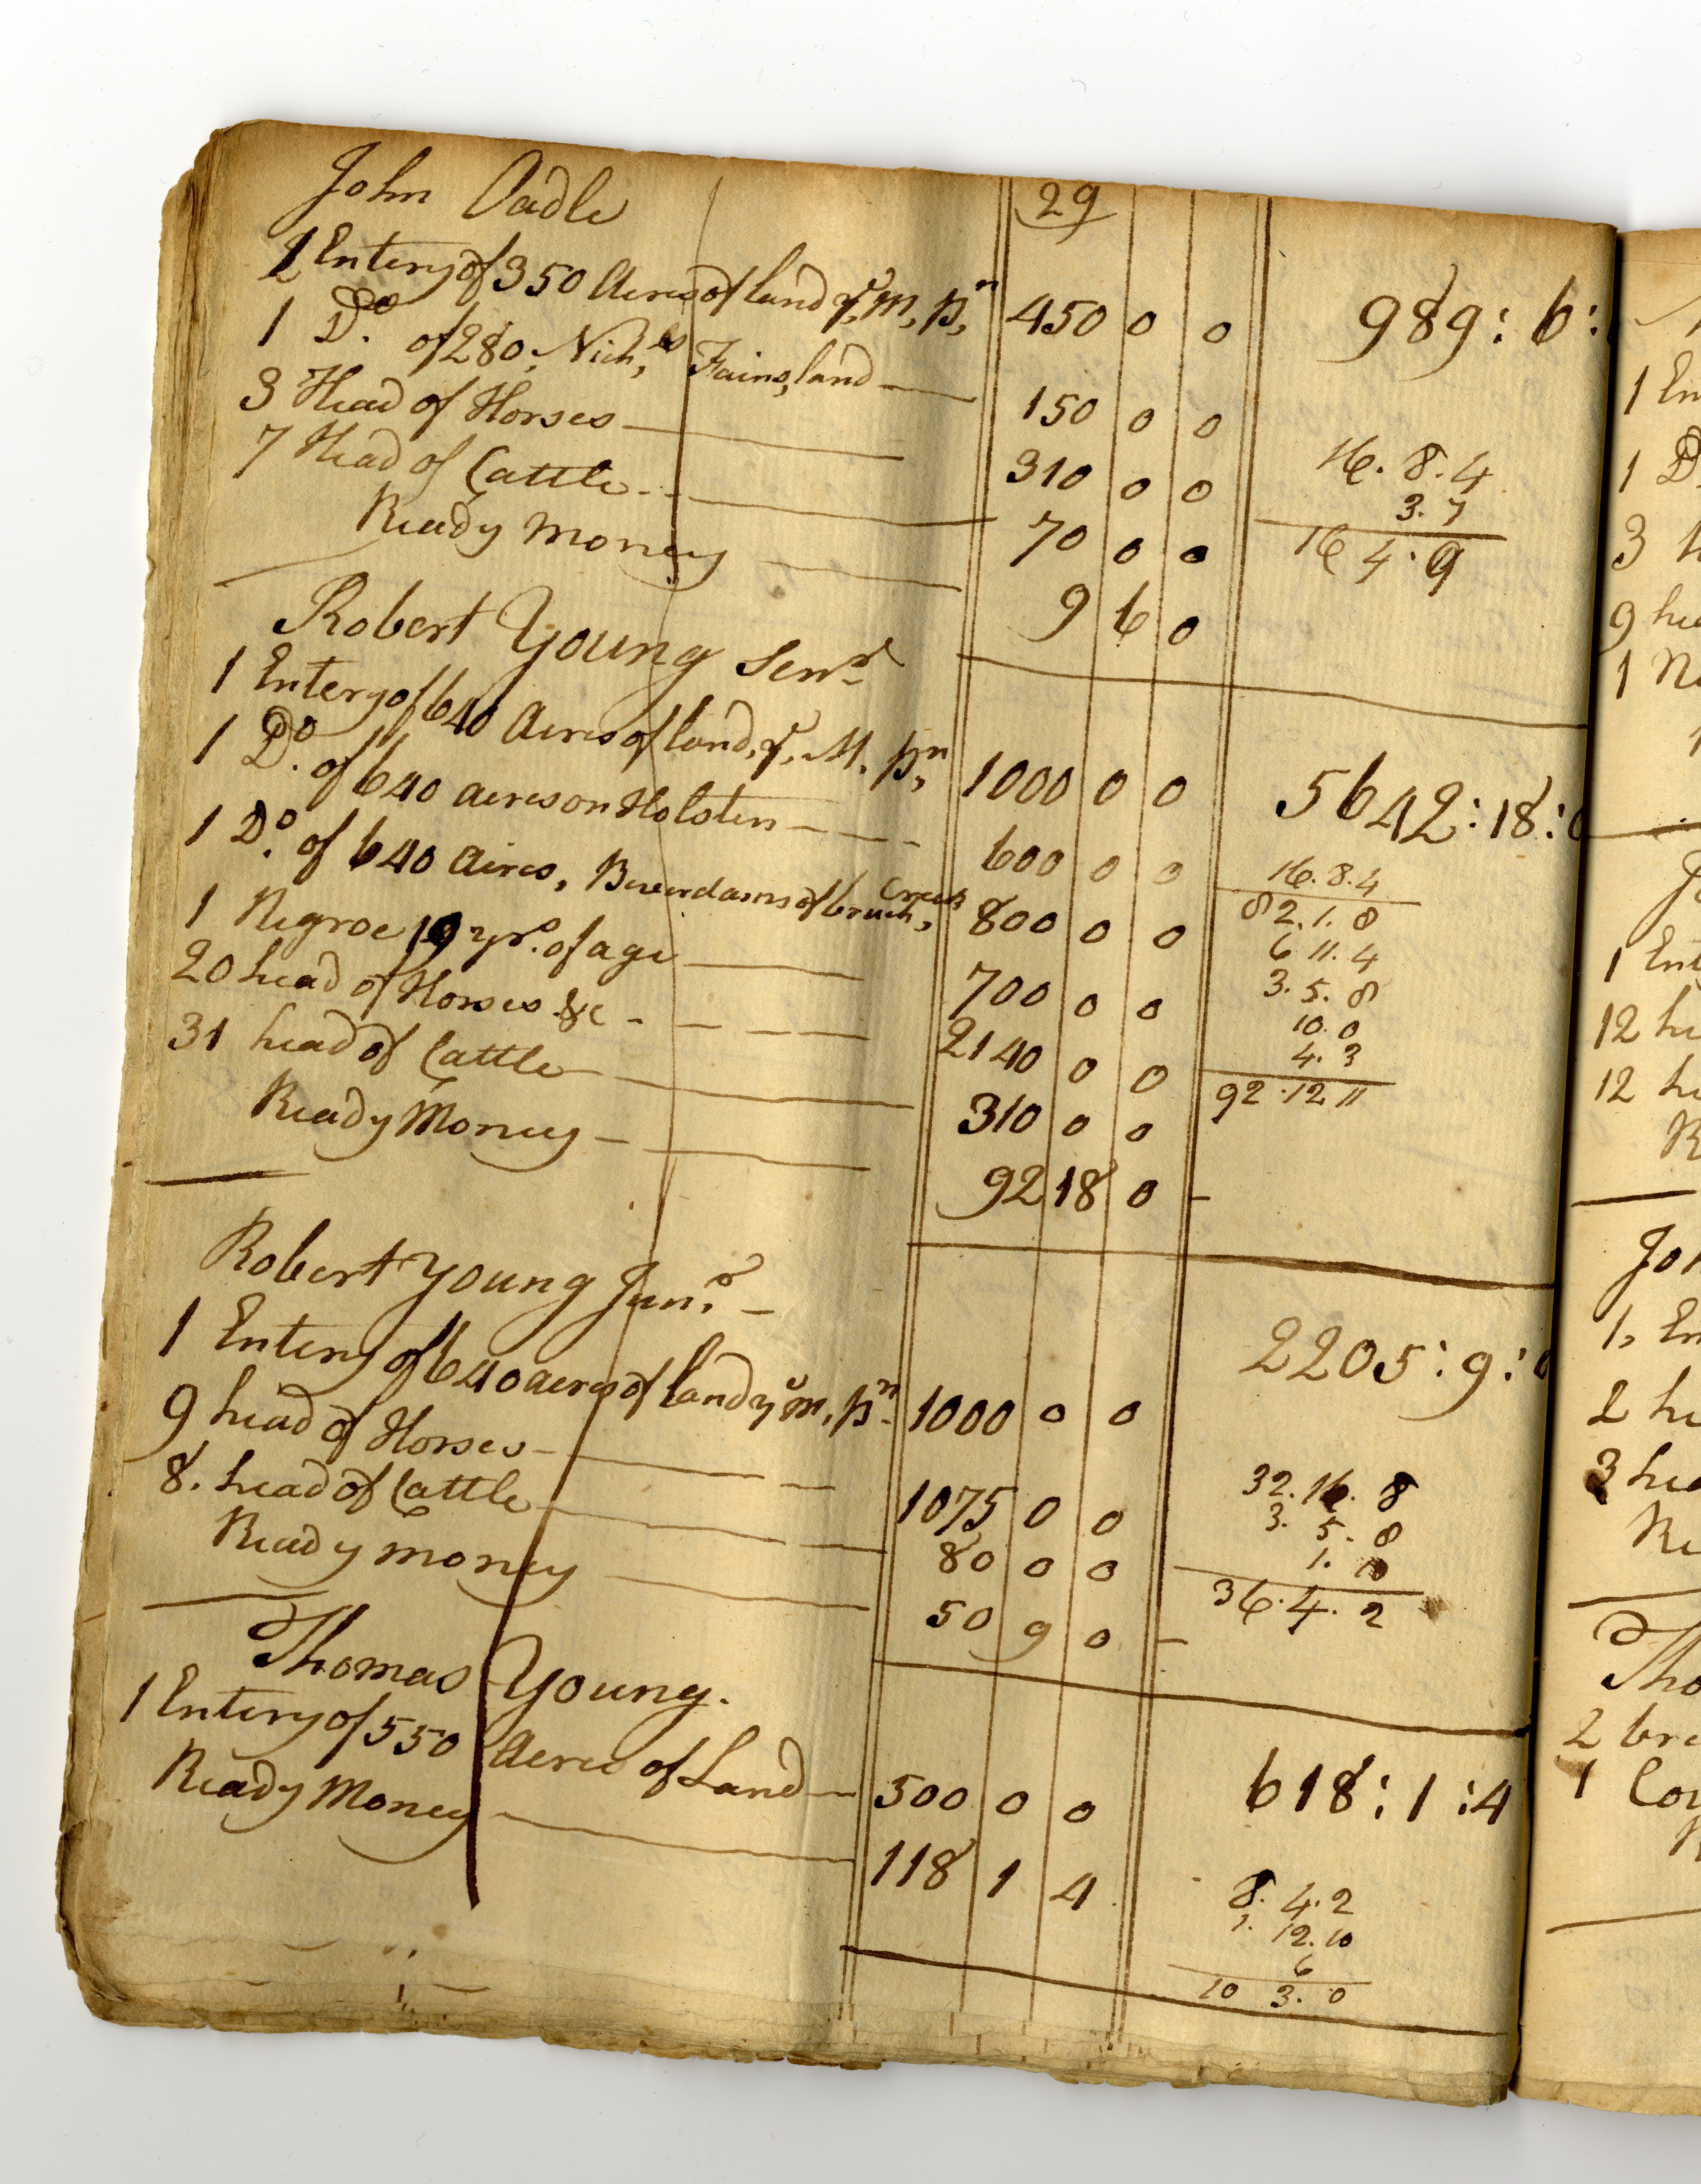 29
John Oadle
1 Entery of 350 Acres of land, yr, M, pn, 450 0 0 989: 6:
1 Do. of 280, Nichs, Fains, land — 150 0 0
3 Head of Horses — 310 0 0 16. 8. 4
7 Head of Cattle — 70 0 0 3. 7
Ready Money — 9 6 0 16 4. 9
Robert Young Senr
1 Entery of 640 Acres of land, yr, M, pn, 1000 0 0 5642: 18: 0
1 Do. of 640 acres on Holsten — 600 0 0 16. 8. 4
1 Do. of 640 aires, Beverdams of brush, Creek 800 0 0 82. 1. 8
1 Negroe 19 yrs. of age — 700 0 0 6 11. 4
20 head of Horses &c — 2140 0 0 3. 5. 8
31 head of Cattle — 310 0 0 10. 0
Ready Money — 92 18 0 — 4. 3
92. 12 11
Robert Young Junr. —
1 Entery of 640 acres of land yr M, pn 1000 0 0 2205: 9: 0
9 head of Horses — 1075 0 0 32. 16. 8
8. head of Cattle — 80 0 0 3. 5. 8
Ready money — 50 9 0 — 1.
36. 4. 2
Thomas Young.
1 Entery of 550 Acres of Land — 500 0 0 618: 1: 4
Ready Money — 118 1 4 8. 4. 2
1. 12. 10
6
10 3. 0
1 En
1 D
3 h
9 he
1 Ne
1 Ent
12 he
12 he
R
Joh
1, En
2 he
3 hea
Re
Tho
2 bre
1 Cow